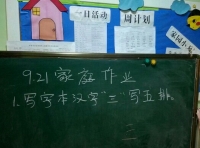 一日活动
周计划
家园小报
9.21家庭作业
1.写字本汉字“三”写五排。
三